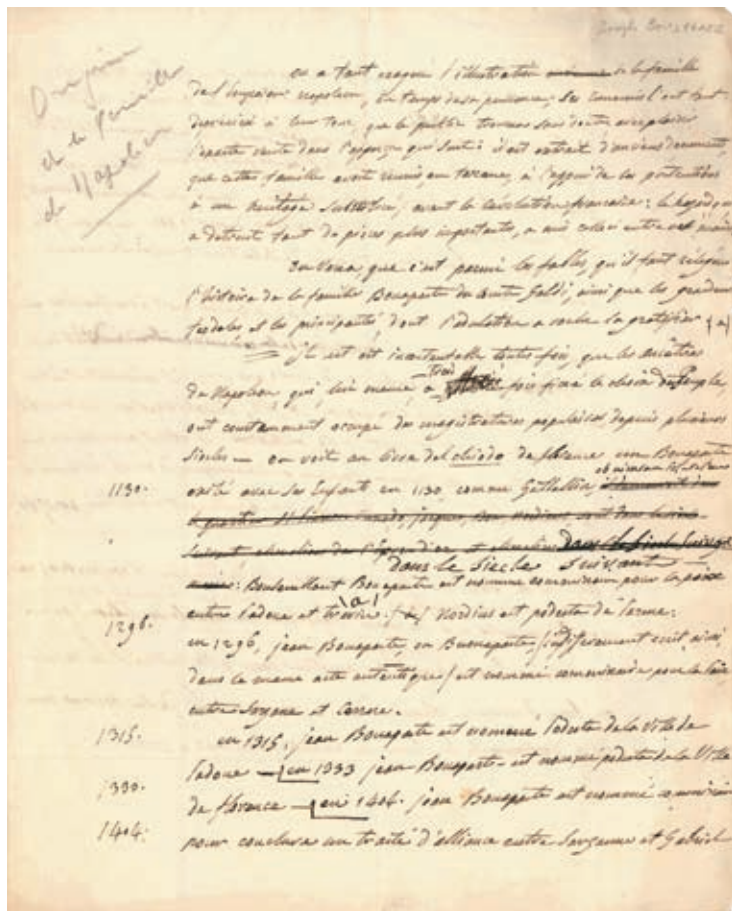 Joseph Bonaparte
Origine
de la famille
de Napoléon
on a tant exagéré l'illustration de la famille
de l'Empereur napoleon, du temps de sa puissance; ses ennemis l'ont tant
à leur tour, que le public trouvera sans doute avec plaisir
l'exacte verité dans l'exposé qui suit: il est extrait d'anciens documents,
que cette famille avoit reunis en toscane, à l'appui de ses pretentions
à un heritage avant la revolution francaise: le hazard, qui
a detruit tant de pieces plus importantes, a mis celles ci entre nos mains
On verra, que c'est parmi les fables, qu'il faut releguer
l'histoire de la famille Bonaparte du Comte Galdi, ainsi que les grandeurs
feodales et les principautés, dont l'adulation a voulu la gratifier (a)
il est incontestable toutes fois, que les ancêtres
de Napoleon, qui, lui meme, a trois fois fixé le choix du peuple,
ont constamment occupé des magistratures populaires depuis plusieurs
siecles — on voit au livre del chiodo de florence un Bonaparte
1130. exilé avec ses Enfants en 1130 comme Gibellin,
dans le siecle suivant
dans le siecle suivant
Bonaparte est nommé commissaire pour la paix
entre Padoue et (a) Nordius est podesta de Parme:
1296. en 1296, jean Bonaparte, ou Buonaparte, (indifferemment ecrit ainsi,
dans le meme acte autentique) est nommé commissaire pour la paix
entre et
1315. en 1315, jean Bonaparte est nommé Podesta de la Ville de
Padoue — en 1333 jean Bonaparte est nommé podesta de la Ville
1330. de florence — en 1404. jean Bonaparte est nommé commissaire
1404. pour conclure un traité d'alliance entre et Gabriel